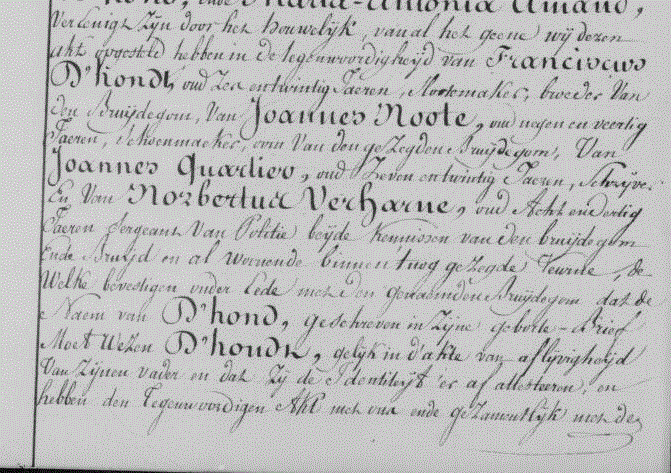 D'hond, ende Maria-Antonia Amand,
Vereenigt Zijn door het houwelijk, van al het geene wij dezen
akt opgesteld hebben in de tegenwoordigheijd van Franciscus
D'hondt, oud Zes entwintig Jaeren, broeder Van
den Bruijdegom, Van Joannes Noote, oud negen en veertig
Jaeren, Schoenmaeker, oom Van den geZegden Bruijdegom, Van
Joannes Quartier, oud Zeven entwintig Jaeren, Schrijver
En Van Norbertus Verharne, oud Acht en dertig
Jaeren Sergeant Van Politie beijde Kennissen van den bruijdegom
Ende Bruijd en al woonende binnen t'nog geZegde Veurne, de
Welke bevestigen onder Eede met den genaemden Bruijdegom dat de
Naem van D'hond, geschreven in Zijne geborte-Brief
Moet Wezen D'hondt, gelijk in d'akte van aflijvigheijd
Van Zijnen vader en dat Zij de Identiteijt er af attesteeren, en
hebben den Tegenwoordigen Akt met ons ende geZamentlijk met de